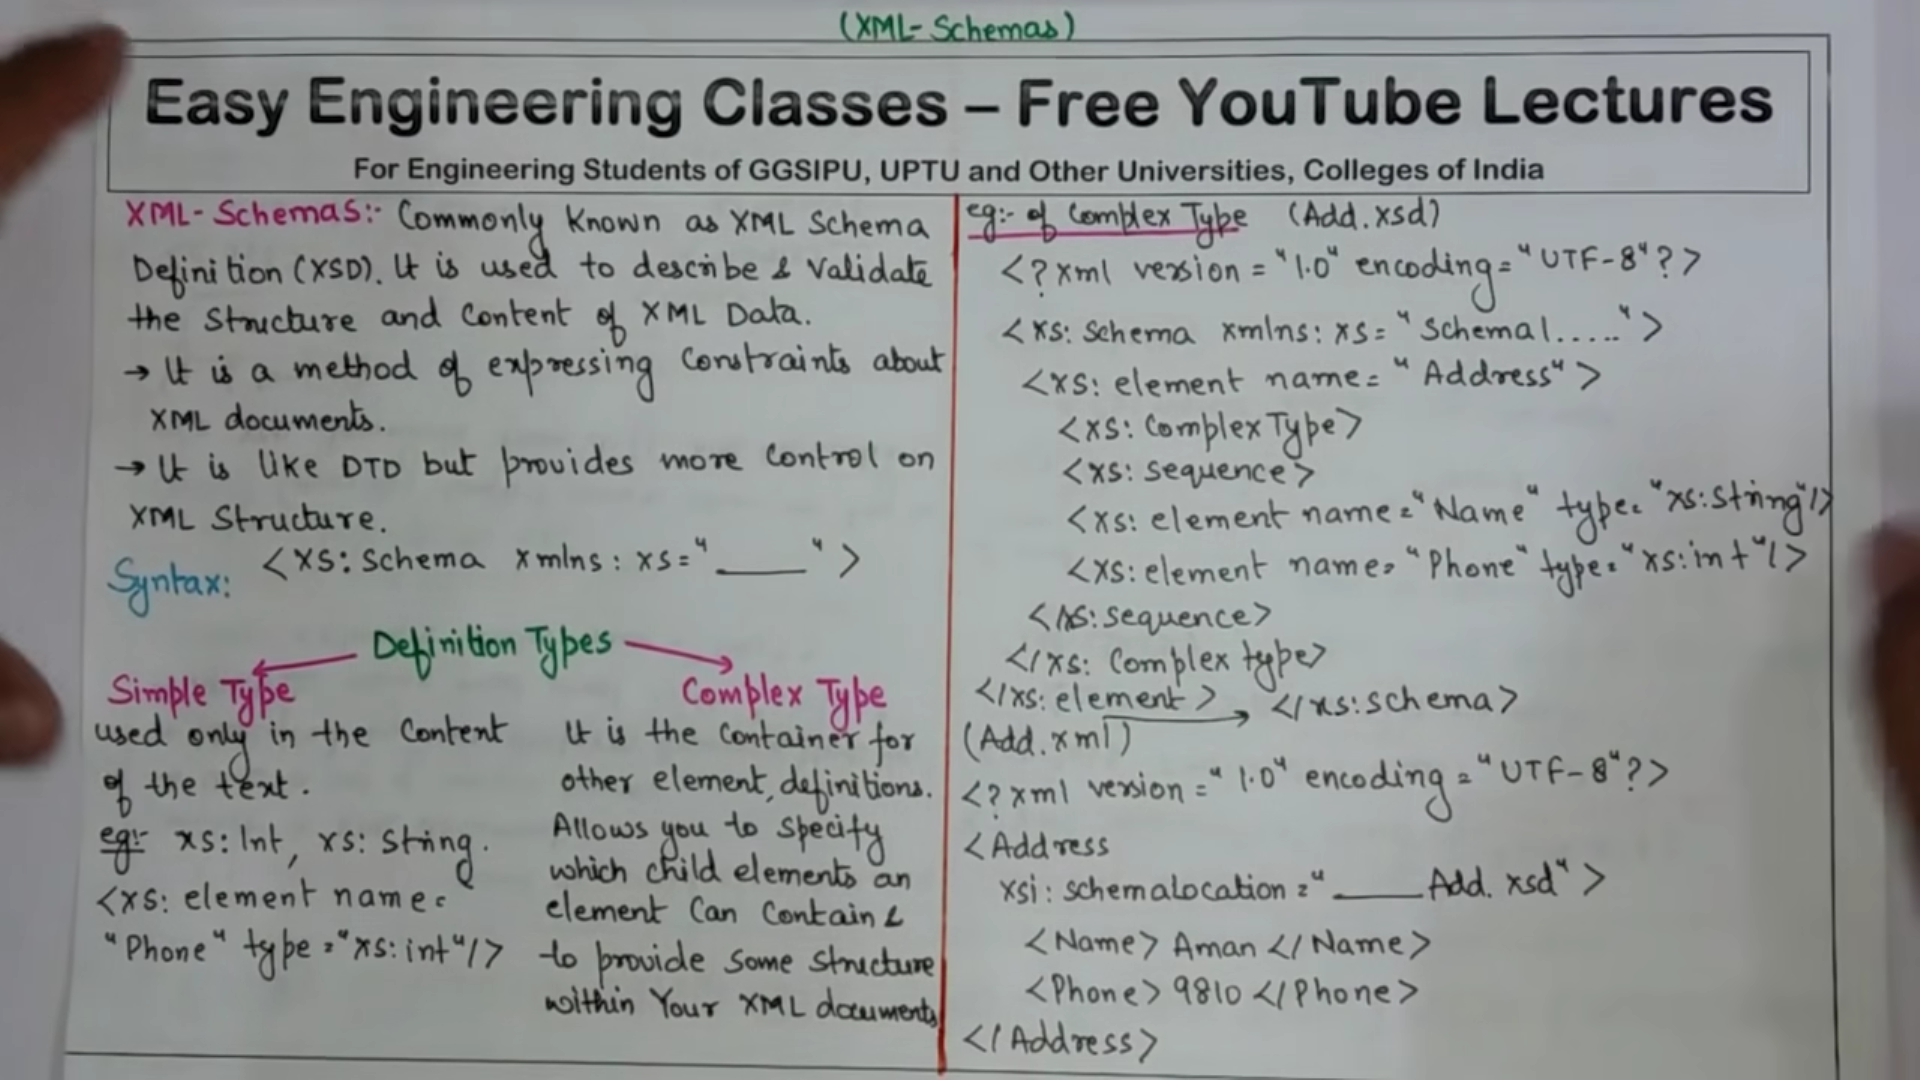 (XML-Schemas)
Easy Engineering Classes – Free YouTube Lectures
For Engineering Students of GGSIPU, UPTU and Other Universities, Colleges of India
XML-Schemas:- Commonly Known as XML Schema
Definition (XSD). It is used to describe & Validate
the Structure and Content of XML Data.
→ It is a method of expressing Constraints about
XML documents.
→ It is like DTD but provides more Control on
XML Structure.
Syntax: <xs: Schema xmlns: xs="____" >
Definition Types
Simple Type
used only in the Content
of the text.
eg:- xs: Int, xs: String.
<xs: element name=
"Phone" type="xs:int"/>
Complex Type
It is the Container for
other element, definitions.
Allows you to Specify
which child elements an
element Can Contain &
to provide Some Structure
within Your XML documents
eg:- of Complex Type (Add.xsd)
<?xml version = "1.0" encoding="UTF-8"?>
<xs: Schema xmlns: xs= "Schema1....." >
<xs: element name= "Address" >
<xs: Complex Type>
<xs: sequence>
<xs: element name="Name" type="xs:String"/>
<xs: element name= "Phone" type="xs:int"/>
</xs:sequence>
</xs: Complex type>
</xs: element> → </xs:schema>
(Add.xml)
<?xml version = "1.0" encoding = "UTF-8"?>
<Address
xsi: schemalocation ="____ Add. xsd" >
<Name> Aman </Name>
<Phone> 9810 </Phone>
</Address>